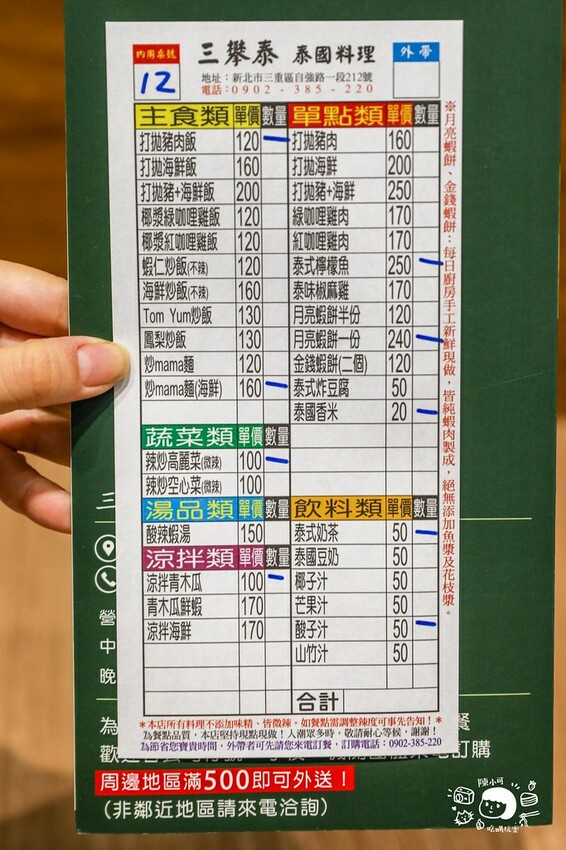 內用桌號
12
三攀泰 泰國料理
外帶
地址：新北市三重區自強路一段212號
電話：0902-385-220
主食類 單價 數量
打拋豬肉飯 120
打拋海鮮飯 160
打拋豬+海鮮飯 200
椰漿綠咖哩雞飯 120
椰漿紅咖哩雞飯 120
蝦仁炒飯(不辣) 120
海鮮炒飯(不辣) 160
Tom Yum炒飯 130
鳳梨炒飯 130
炒mama麵 120
炒mama麵(海鮮) 160
蔬菜類 單價 數量
辣炒高麗菜(微辣) 100
辣炒空心菜(微辣) 100
湯品類 單價 數量
酸辣蝦湯 150
涼拌類 單價 數量
涼拌青木瓜 100
青木瓜鮮蝦 170
涼拌海鮮 170
單點類 單價 數量
打拋豬肉 160
打拋海鮮 200
打拋豬+海鮮 250
綠咖哩雞肉 170
紅咖哩雞肉 170
泰式檸檬魚 250
泰味椒麻雞 170
月亮蝦餅半份 120
月亮蝦餅一份 240
金錢蝦餅(二個) 120
泰式炸豆腐 50
泰國香米 20
飲料類 單價 數量
泰式奶茶 50
泰國豆奶 50
椰子汁 50
芒果汁 50
酸子汁 50
山竹汁 50
合計
※月亮蝦餅、金錢蝦餅：每日廚房手工新鮮現做，皆純蝦肉製成，絕無添加魚漿及花枝漿。
*本店所有料理不添加味精、皆微辣，如餐點需調整辣度可事先告知！*
為餐點品質，本店堅持現點現做！人潮眾多時，敬請耐心等候，謝謝！
為節省您寶貴時間，外帶者可先請您來電訂餐，訂購電話：0902-385-220
三
營
中
晚
為
餐
歡
訂購
周邊地區滿500即可外送！
(非鄰近地區請來電洽詢)
陳小可
吃喝玩樂